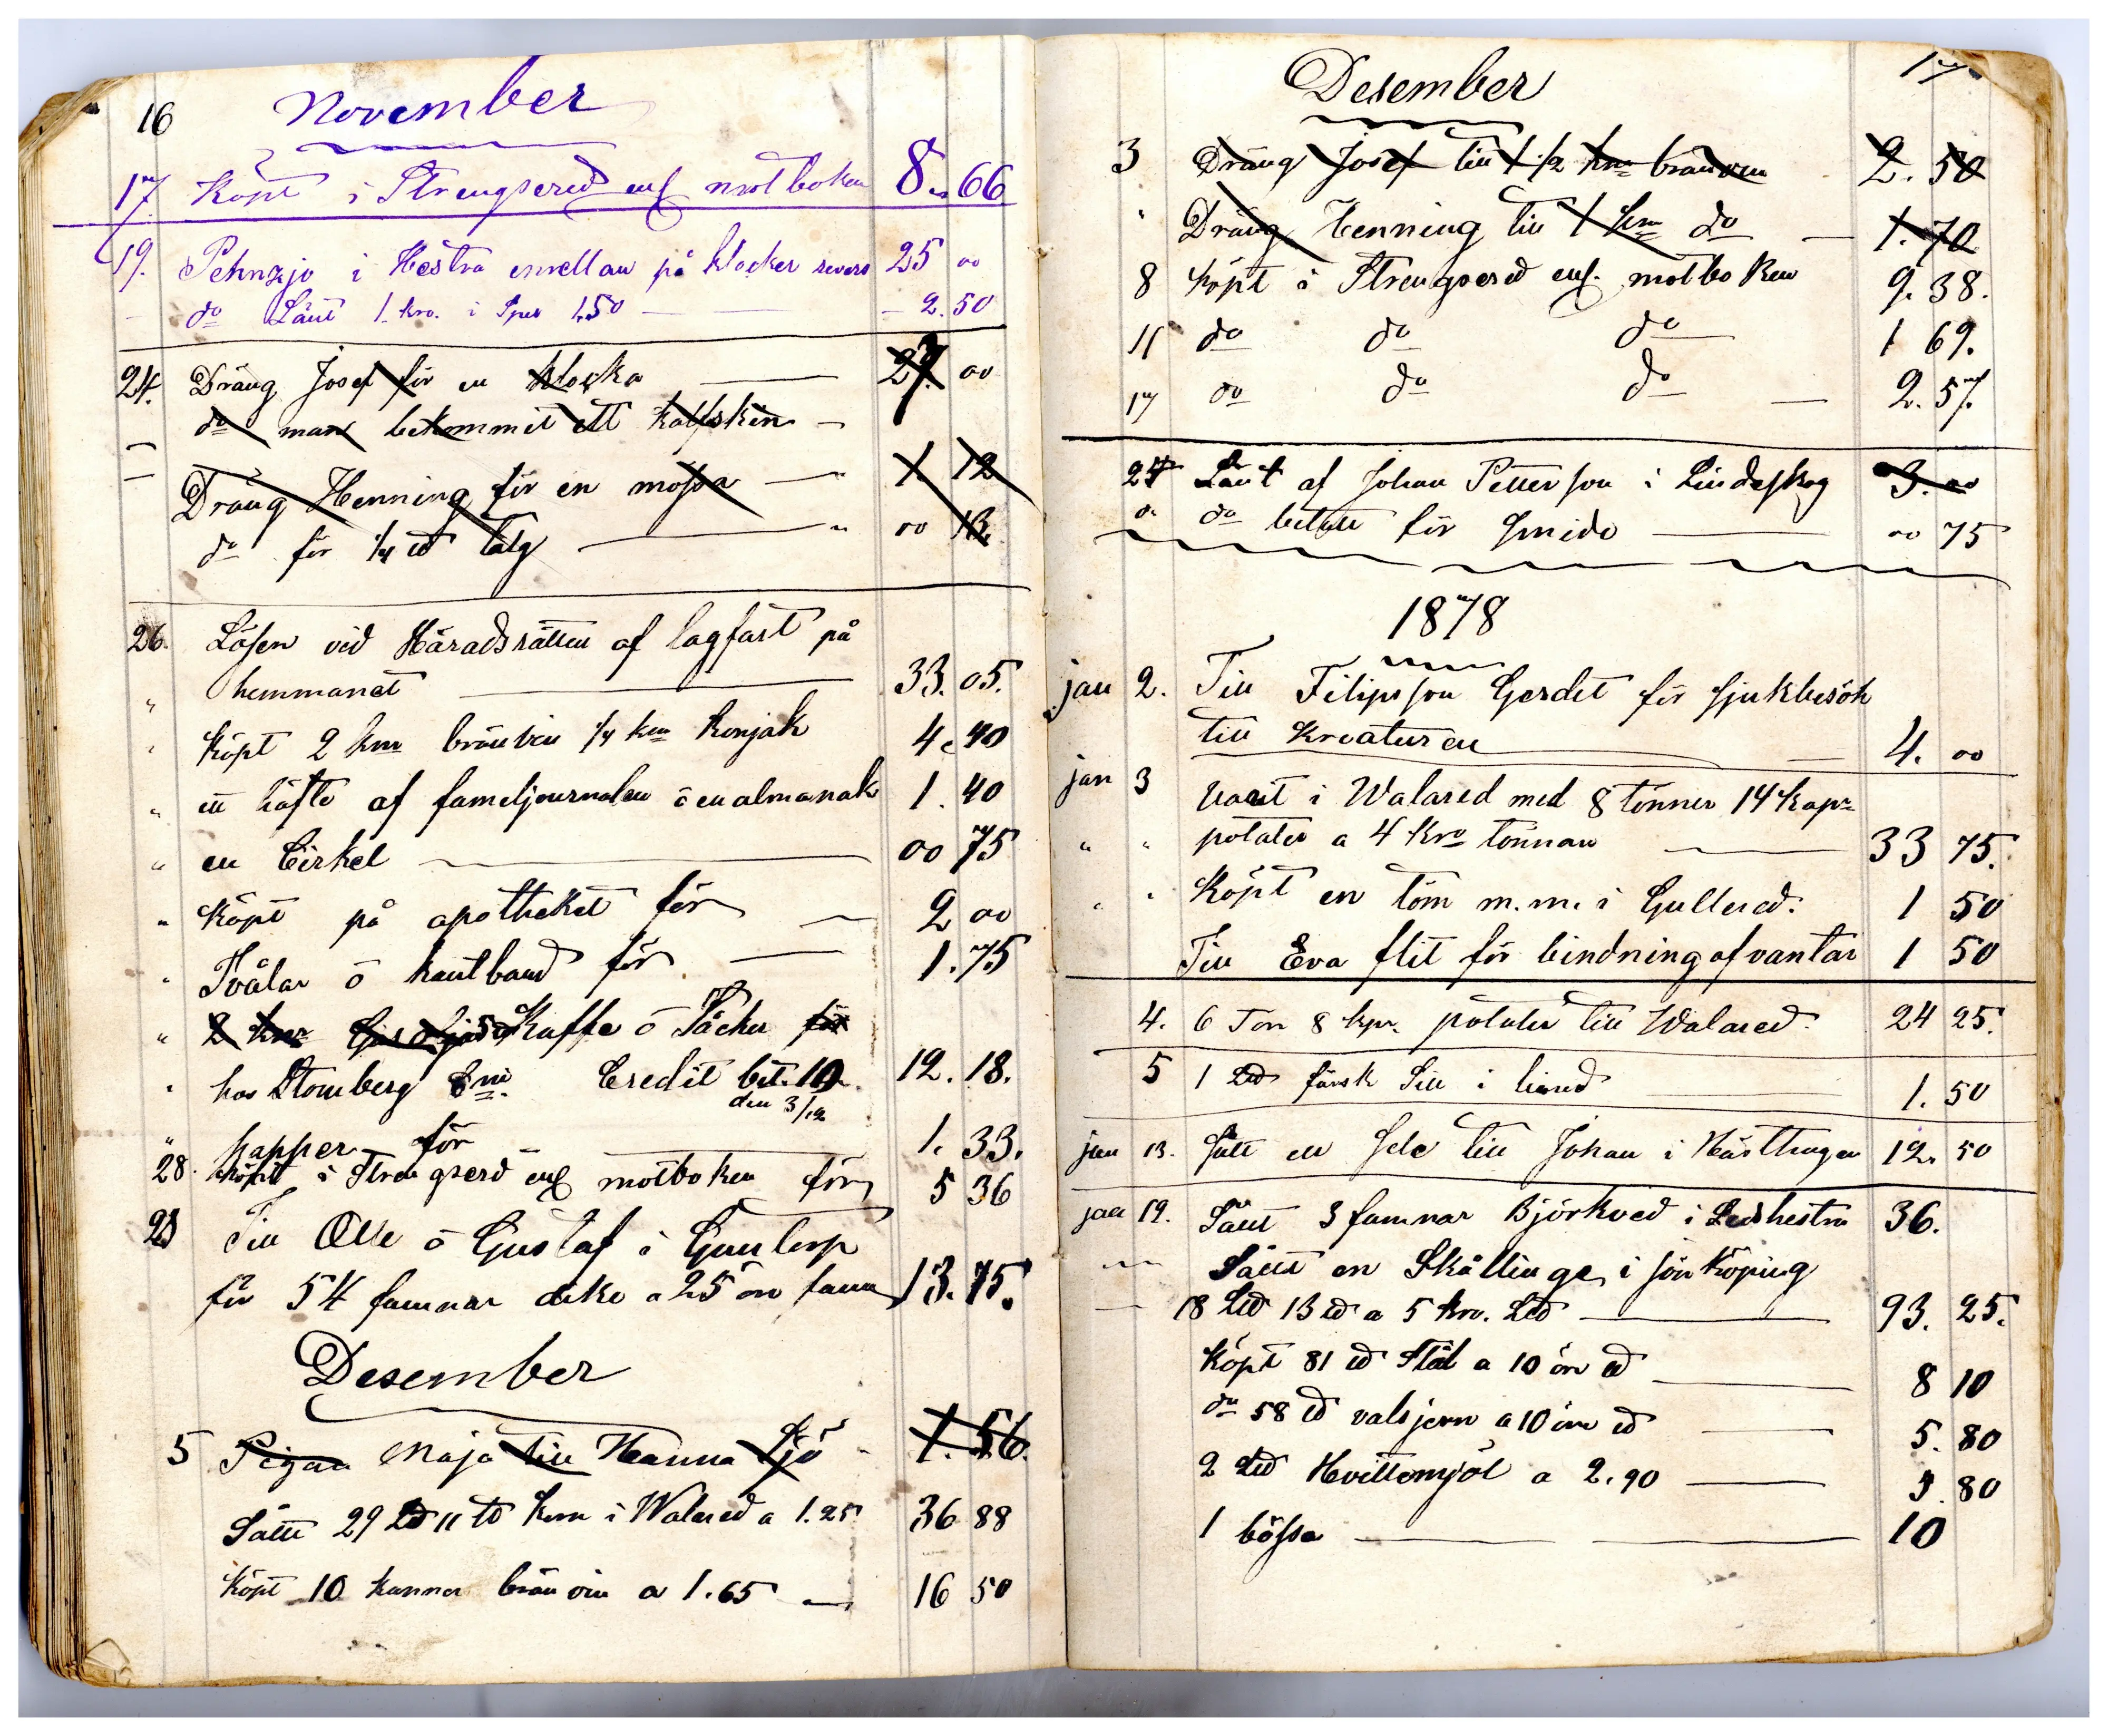 16 November
17 Köpt i Strengsered enl motboken 8 66
19. i Hestra emellan på klocker revers 25 00
do Lånt 1. kro. i 1,50 2.50
24. Dräng Josef för en klocka 27. 00
do man bekommit ett kalfskin
Dräng Henning för en mössa 1 12
do för 1/4 ℔ talg 00 13.
26. Lösen vid Häradsrätten af lagfart på
" hemmanet 33. 05.
" Köpt 2 knr bränvin 1/4 knr konjak 4. 40
" ett häfte af fameljournalen ō en almanak 1. 40
" en Cirkel 00 75
" Köpt på apotheket för 2 00
" Tvålar ō kantband för 1.75
" 2 knr Kaffe ō Såcker för
" hos Stomberg Credit bet. 10. 12. 18.
den 3/12
" papper för 1. 33.
28. Köpt i Strengserd enl motboken för 5 36
Till Olle ō Gustaf i Guntorp
för 54 famnar dike a 25 öre famn 13.75.
Desember
5 Pigan Maja till Hanna Sjö 1. 56.
Sått 29 L℔ 11 ℔ korn i Walared a 1.25 36 88
Köpt 10 kannor bränvin a 1.65 16 50
Desember 17
3 Dräng Josef till 1 1/2 knr bränvin 2. 50
" Dräng Henning till 1 knr do 1. 70
8 Köpt i Strengserd enl. motboken 9. 38.
11 do do do 1 69.
17 do do do 2. 57.
24 Lånt af Johan Petterson i Lindeskog 3. 00
do betalt för smide 00 75
1878
jan 2. Till Filipsson Gerdet för sjukbesök
till Kreaturen 4. 00
jan 3 varit i Walared med 8 tönner 14 kapr
" " potater a 4 kro tönnan 33 75.
" " Köpt en töm m.m. i Gullered. 1 50
Till Eva flit för bindning af vantar 1 50
4. 6 Ton 8 kpr. potater till Walared. 24 25.
5 1 L℔ färsk Sill i 1. 50
jan 13. Sått en Sele till Johan i Hästhagen 12. 50
jan 19. Sått 3 famnar Björkved i Ledshestra 36.
Sått en Skållinge i jönköping
18 L℔ 13 ℔ a 5 kro. L℔ 93. 25.
Köpt 81 ℔ Stål a 10 öre ℔ 8 10
do 58 ℔ valsjern a 10 öre ℔ 5. 80
2 L℔ Hvittemjöl a 2.90 5. 80
1 bössa 10